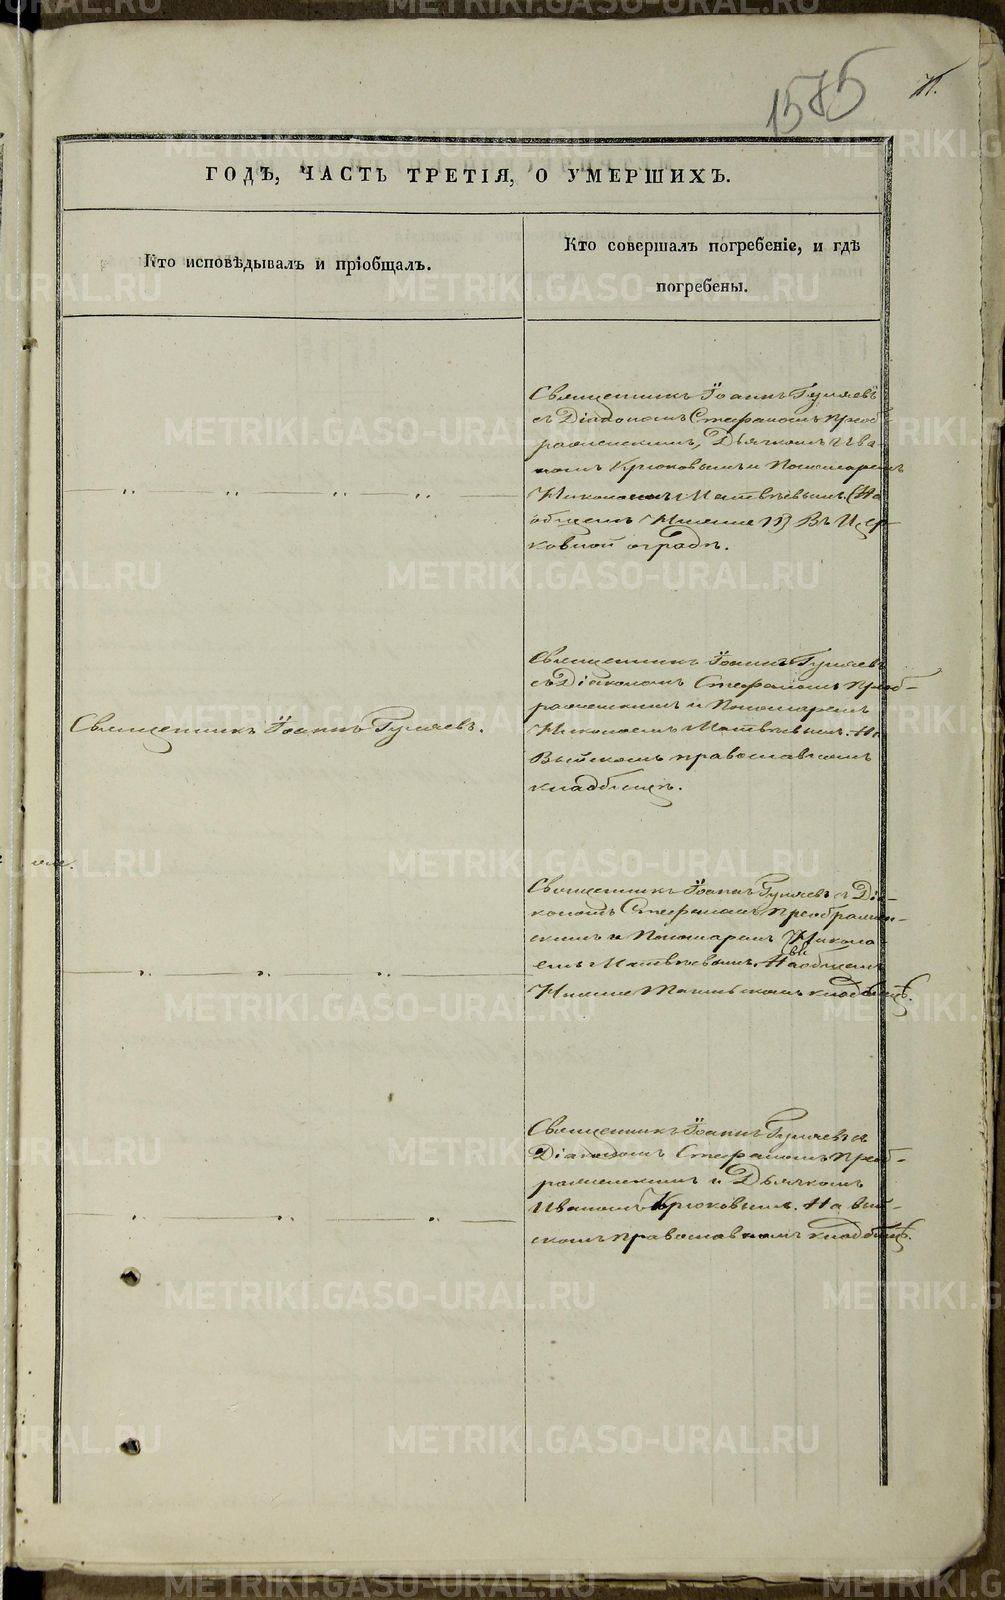 1575
71.
ГОДЪ, ЧАСТЬ ТРЕТІЯ, О УМЕРШИХЪ.
Кто исповѣдывалъ и пріобщалъ.
Кто совершалъ погребеніе, и гдѣ
погребены.
Священникъ Іоаннъ Гуляевъ
съ Діакономъ Стефаномъ Преоб-
раженскимъ, Дьячкомъ Ива-
номъ Крюковымъ и Пономаремъ
Николаемъ Матвѣевымъ (На
общемъ Нижне ) Въ Цер-
ковной оградѣ.
Священникъ Іоаннъ Гуляевъ.
Священникъ Іоаннъ Гуляевъ
съ Діакономъ Стефаномъ Преоб-
раженскимъ и Пономаремъ
Николаемъ Матвѣевымъ. На
Выйскомъ православномъ
кладбищѣ.
Священникъ Іоаннъ Гуляевъ съ Діа-
кономъ Стефаномъ Преображен-
скимъ и Пономаремъ Никола-
емъ Матвѣевымъ. На общемъ
Нижне Тагильскомъ кладбищѣ.
Священникъ Іоаннъ Гуляевъ съ
Діакономъ Стефаномъ Преоб-
раженскимъ и Дьячкомъ
Иваномъ Крюковымъ. На Вый-
скомъ православномъ кладбищѣ.
METRIKI.GASO-URAL.RU